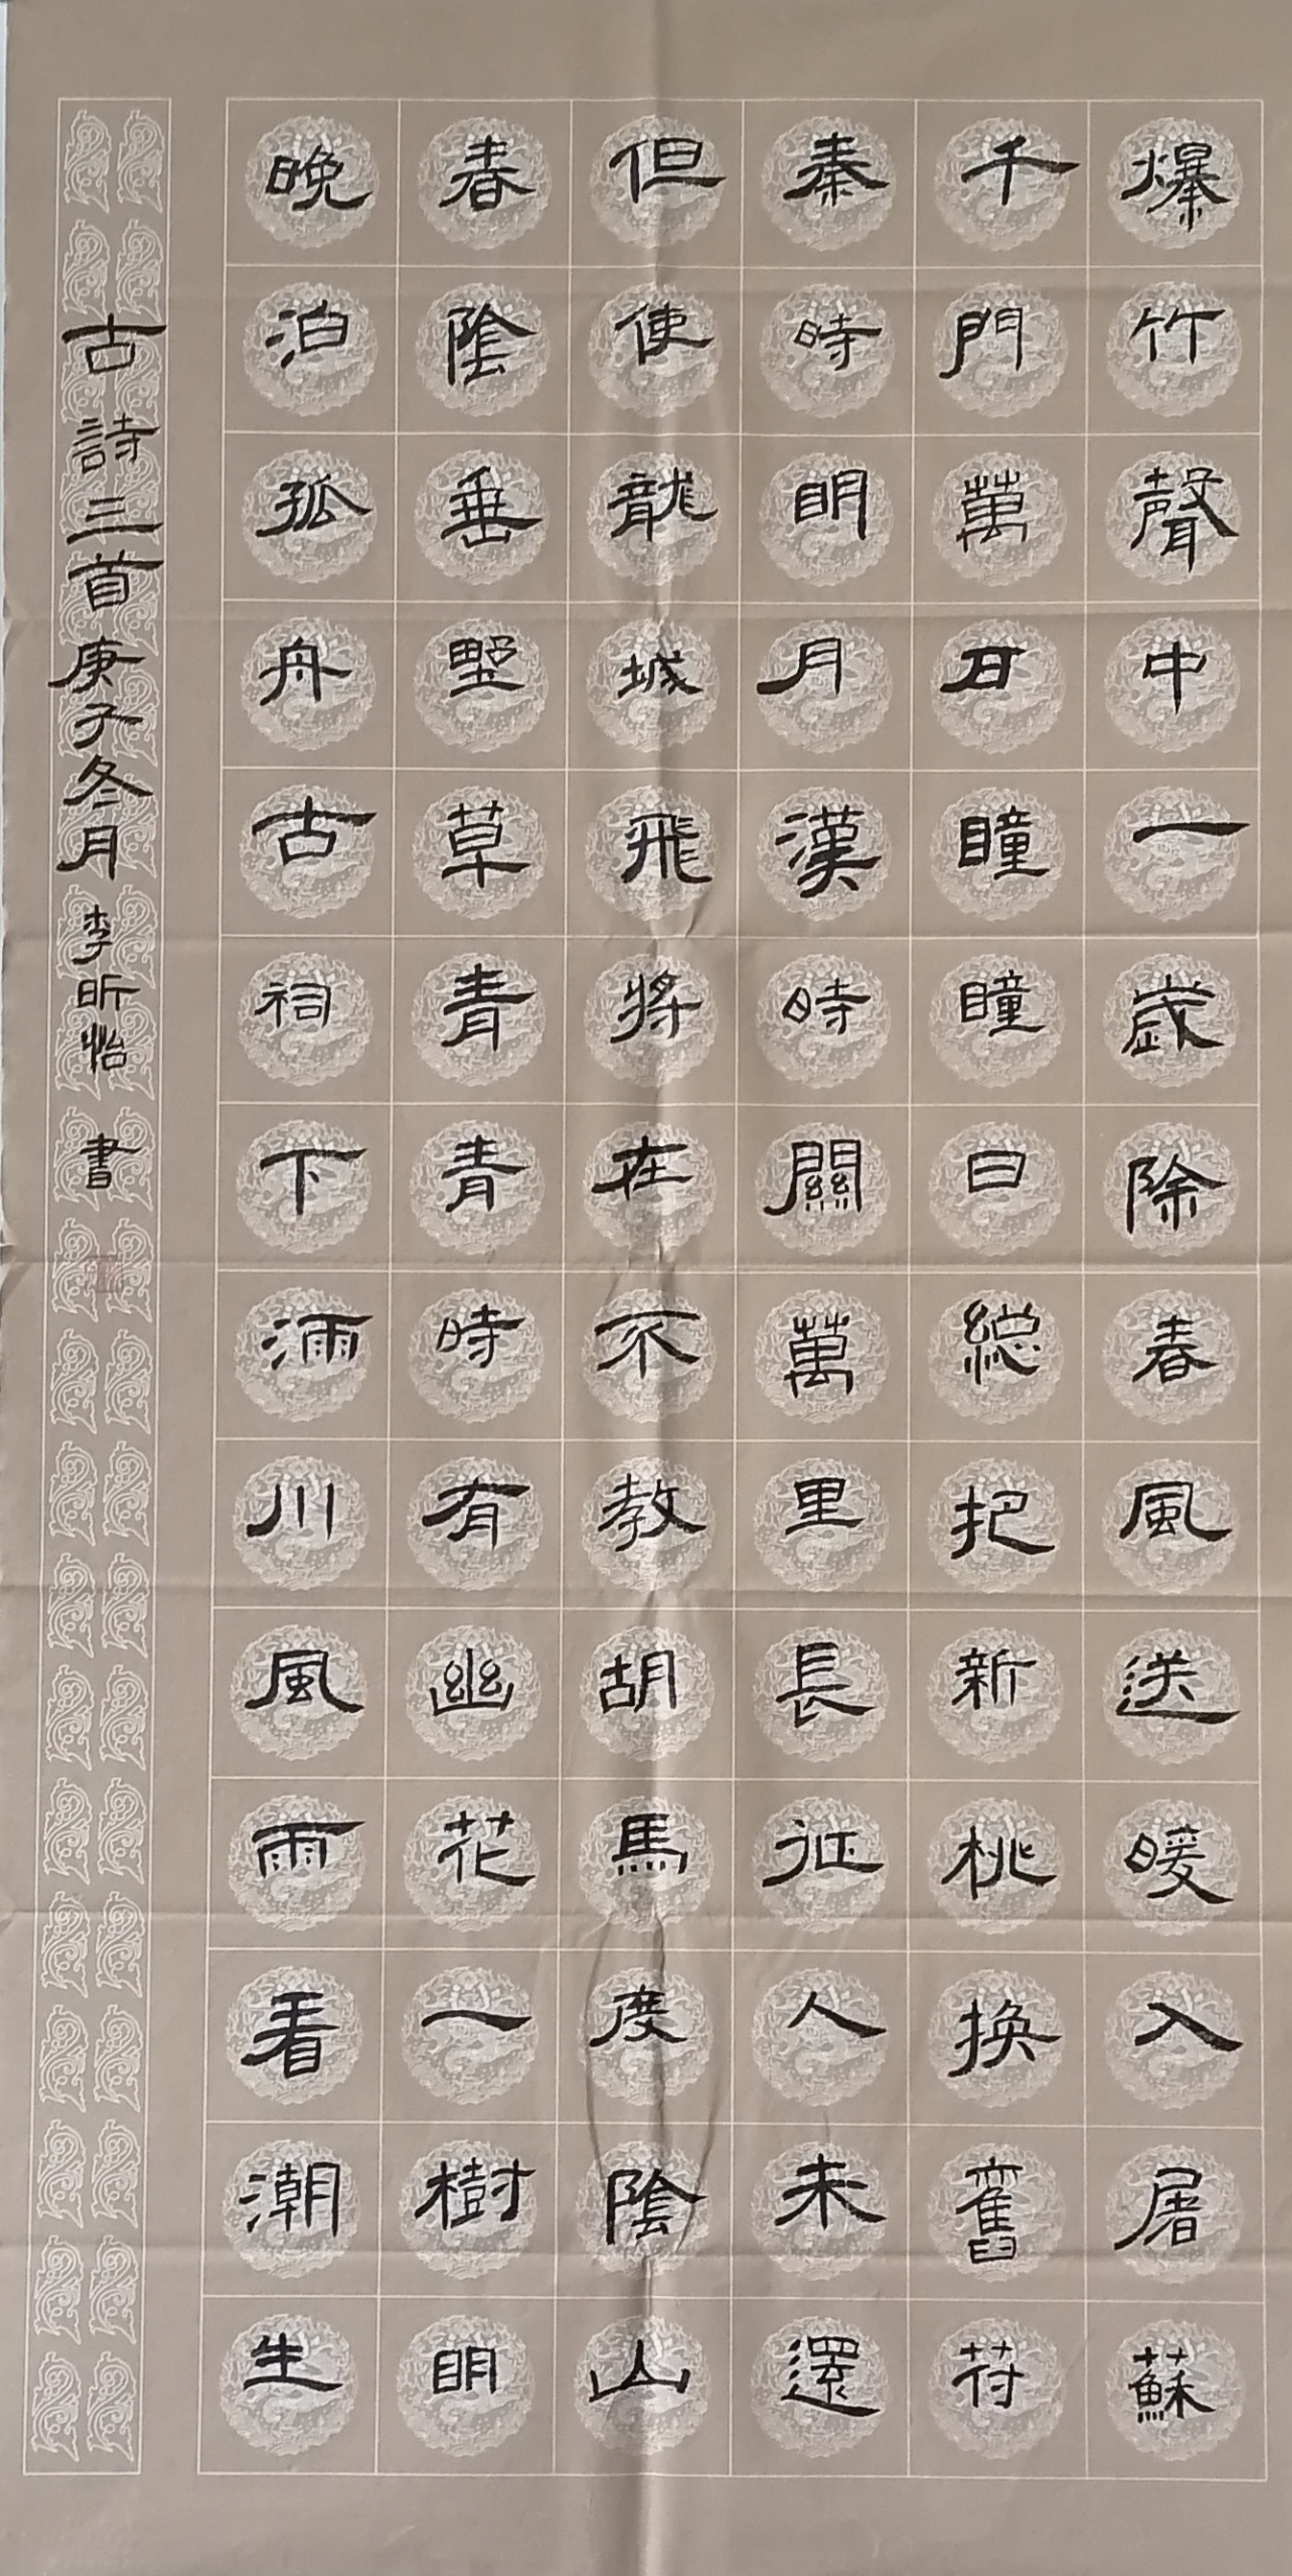 爆竹聲中一歲除春風送暖入屠蘇
千門萬日瞳瞳日總把新桃換舊苻
秦時明月漢時關萬里長征人未還
但使龍城飛將在不教胡馬度陰山
春陰垂野草青青時有幽花一樹明
晚泊孤舟古祠下滿川風雨看潮生
古詩三首庚子冬月李昕怡書